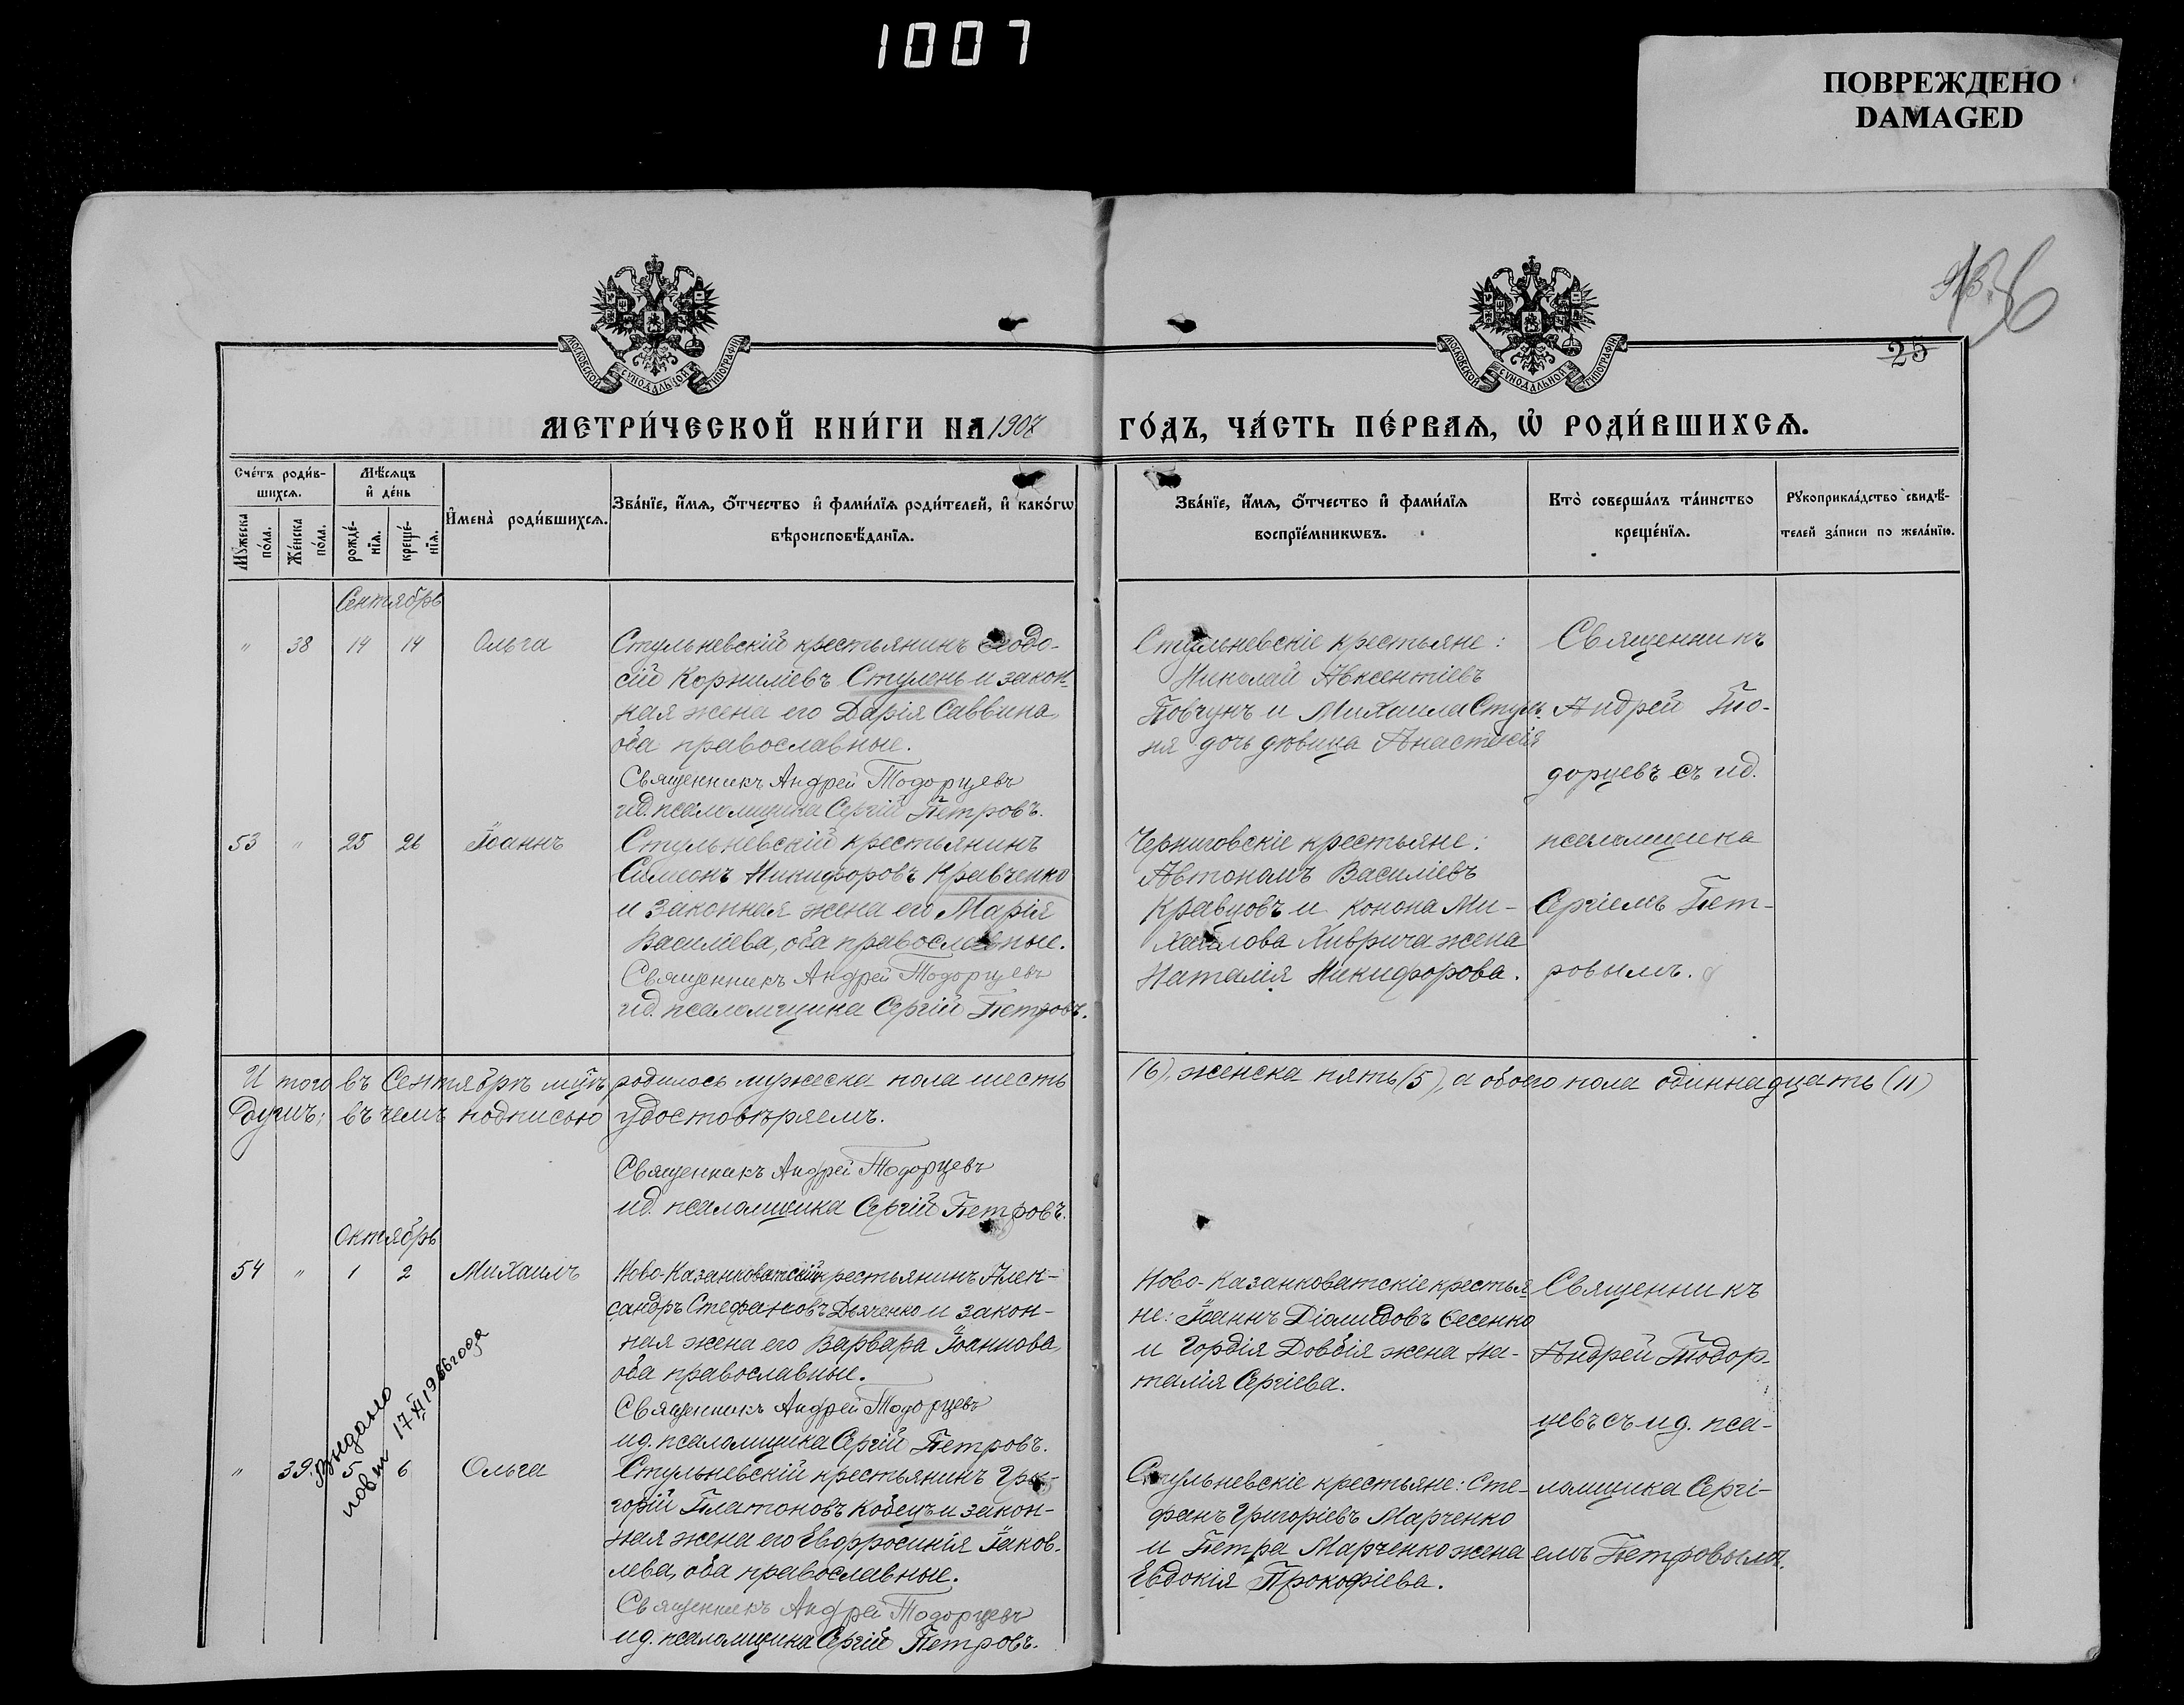 1007
ПОВРЕЖДЕНО
DAMAGED
25
МОСКОВСКОЙ СУНОДАЛЬНОЙ ТИПОГРАФІИ
МОСКОВСКОЙ СУНОДАЛЬНОЙ ТИПОГРАФІИ
МЕТРИ́ЧЕСКОЙ КНИ́ГИ НА 1907
ГО́ДЪ, ЧА́СТЬ ПЕ́РВАѦ, Ѡ҆ РОДИ́ВШИХСѦ.
Сче́тъ роди́в-
шихсѧ.
Мѣ́сѧцъ
и҆ де́нь
Мꙋ́жеска
по́ла.
Же́нска
по́ла.
рожде́-
нїѧ.
креще́-
нїѧ.
И҆мена̀ роди́вшихсѧ.
Зва́нїе, и҆́мѧ, ѻ҆́тчество и҆ фами́лїѧ роди́телей, и҆ како́гѡ
вѣроисповѣ́данїѧ.
Зва́нїе, и҆́мѧ, ѻ҆́тчество и҆ фами́лїѧ
воспрїе́мникѡвъ.
Кто̀ соверша́лъ та́инство
креще́нїѧ.
Рꙋкоприкла́дство свидѣ́-
телей за́писи по жела́нїю.
Сентябрь
" 38 14 14 Ольга
Стульневскій крестьянинъ Ѳеодо-
сій Корниліевъ Ступень и закон-
ная жена его Дарія Саввина,
оба православные.
Священникъ Андрей Тодорцевъ
ид. псаломщика Сергій Петровъ.
Стульневскіе крестьяне:
Николай Авксентіевъ
Повчунъ и Михаила Ступ-
ня дочь дѣвица Анастасія
Священникъ
Андрей Тіо-
дорцевъ съ ид.
53 " 25 26 Іоаннъ
Стульневскій крестьянинъ
Симеонъ Никифоровъ Кравченко
и законная жена его Марія
Василіева, оба православные.
Священникъ Андрей Тодорцевъ
ид. псаломщика Сергій Петровъ.
Черниговскіе крестьяне:
Автономъ Василіевъ
Кравцовъ и Конона Ми-
хайлова Хиврича жена
Наталія Никифорова.
псаломщика
Сергіемъ Пет-
ровымъ.
Итого въ Сентябрѣ мцѣ родилось мужеска пола шесть
(6), женска пять (5), а обоего пола одиннадцать (11)
душъ; въ чемъ подписью удостовѣряемъ.
Священникъ Андрей Тодорцевъ
ид. псаломщика Сергій Петровъ.
Октябрь
54 " 1 2 Михаилъ
Ново-Казанковатскій крестьянинъ Алек-
сандръ Стефановъ Дьяченко и закон-
ная жена его Варвара Іоаннова,
оба православные.
Священникъ Андрей Тодорцевъ
ид. псаломщика Сергій Петровъ.
Ново-Казанковатскіе крестья-
не: Іоаннъ Діомидовъ Ѳесенко
и Гордія Довбія жена На-
талія Сергіева.
Священникъ
Андрей Тіодор-
цевъ съ ид. пса-
Выдано
повт 17 XI 1966 года
" 39. 5 6 Ольга
Стульневскій крестьянинъ Гри-
горій Платоновъ Кобецъ и закон-
ная жена его Евфросинія Іаков-
лева, оба православные.
Священникъ Андрей Тодорцевъ
ид. псаломщика Сергій Петровъ.
Стульневскіе крестьяне: Сте-
фанъ Григоріевъ Марченко
и Петра Марченко жена
Евдокія Прокофіева.
ломщика Сергі-
емъ Петровымъ.